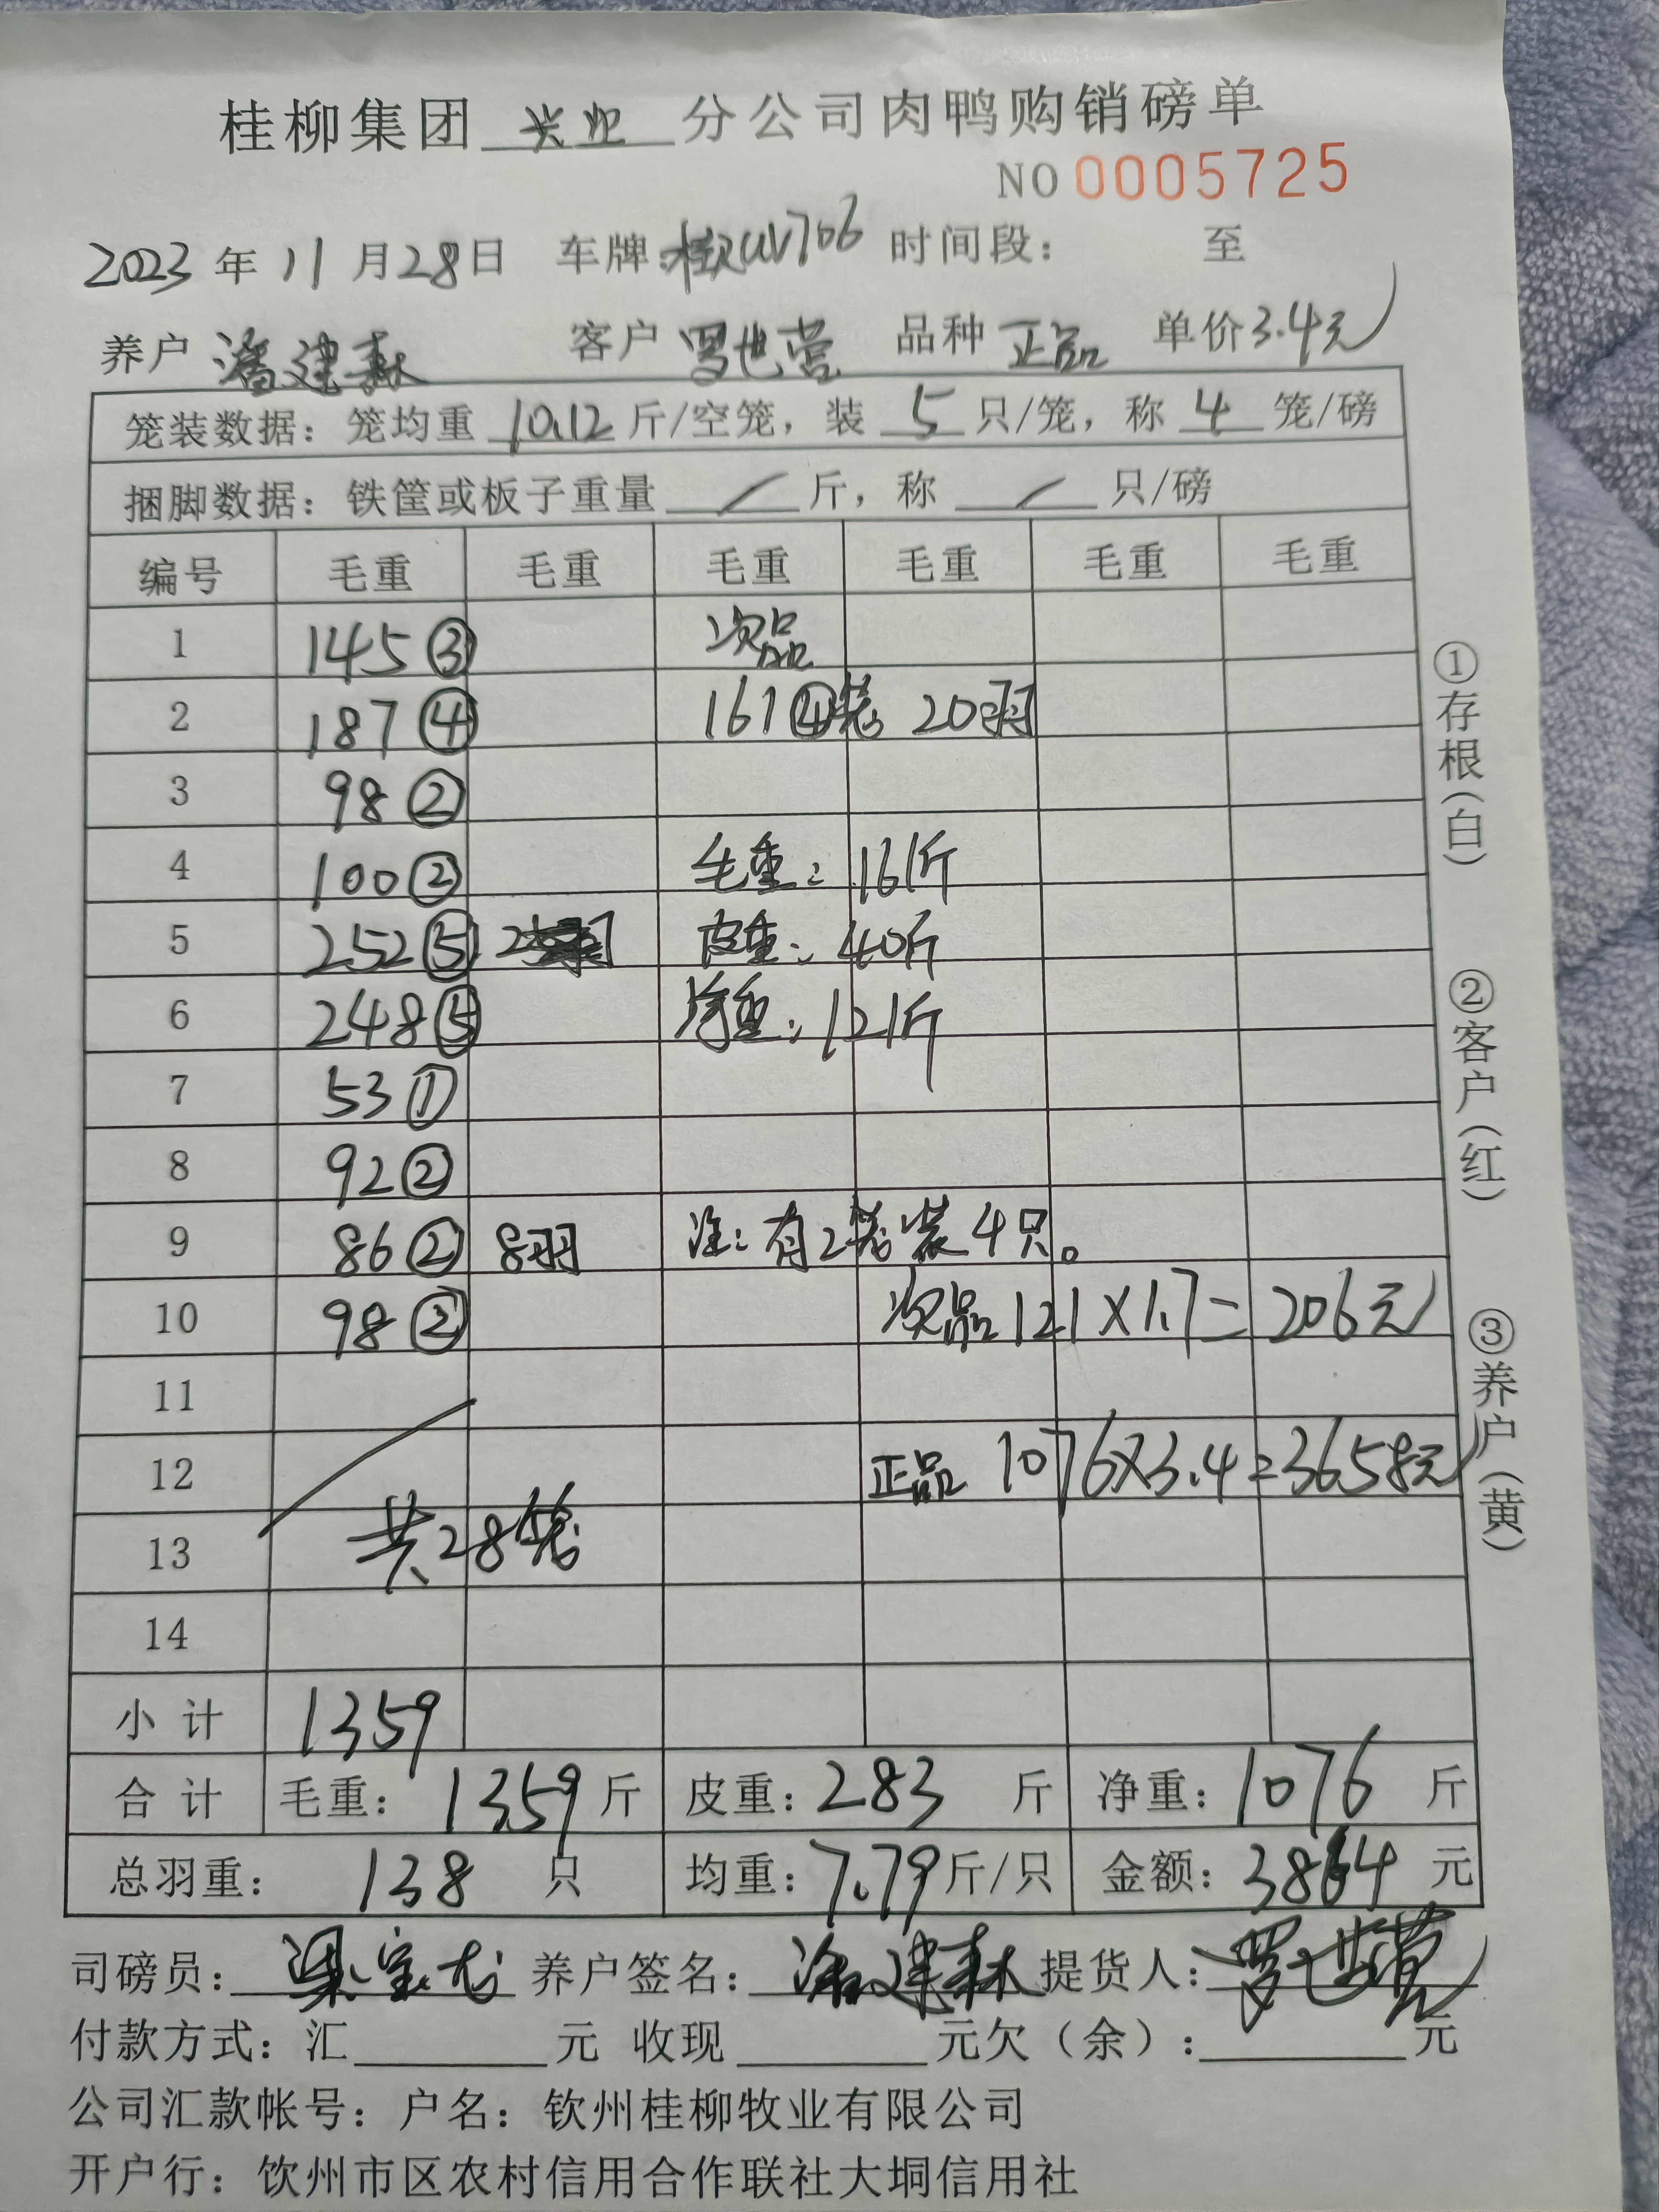 桂柳集团 兴业 分公司肉鸭购销磅单
NO 0005725
2023 年 11 月 28 日 车牌: 706 时间段: 至
养户 潘建森 客户 罗世营 品种 正品 单价 3.4元
笼装数据: 笼均重 10.12 斤/空笼, 装 5 只/笼, 称 4 笼/磅
捆脚数据: 铁筐或板子重量 / 斤, 称 / 只/磅
编号 毛重 毛重 毛重 毛重 毛重 毛重
1 145 ③ 次品
2 187 ④ 161 ④笼 20羽
3 98 ②
4 100 ② 毛重: 161斤
5 252 ⑤ 皮重: 40斤
6 248 ⑤ 净重: 121斤
7 53 ①
8 92 ②
9 86 ② 8羽 注: 有2笼装4只。
10 98 ② 次品 121×1.7=206元
11
12 正品 1076×3.4=3658元
13 共28笼
14
小 计 1359
合 计 毛重: 1359 斤 皮重: 283 斤 净重: 1076 斤
总羽重: 138 只 均重: 7.79 斤/只 金额: 3864 元
司磅员: 梁宝龙 养户签名: 潘建森 提货人: 罗世营
付款方式: 汇 元 收现 元欠(余): 元
公司汇款帐号: 户名: 钦州桂柳牧业有限公司
开户行: 饮州市区农村信用合作联社大垌信用社
①存根(白) ②客户(红) ③养户(黄)